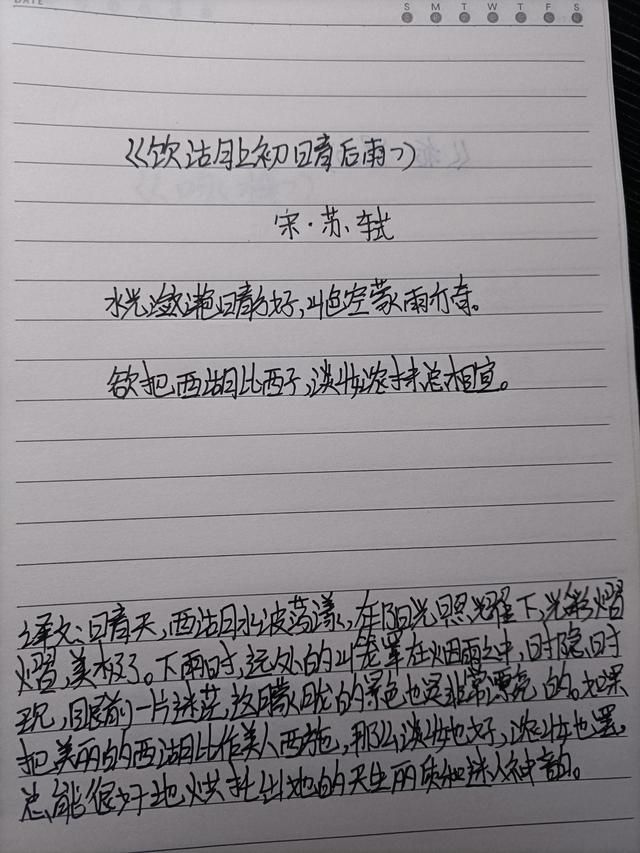 DATE
S M T W T F S
《饮湖上初晴后雨》
宋·苏轼
水光潋滟晴方好,山色空蒙雨亦奇。
欲把西湖比西子,淡妆浓抹总相宜。
译文:晴天,西湖水波荡漾,在阳光照耀下,光彩熠
熠,美极了。下雨时,远处的山笼罩在烟雨之中,时隐时
现,眼前一片迷茫,这朦胧的景色也是非常漂亮的。如果
把美丽的西湖比作美人西施,那么淡妆也好,浓妆也罢,
总能很好地烘托出她的天生丽质和迷人神韵。